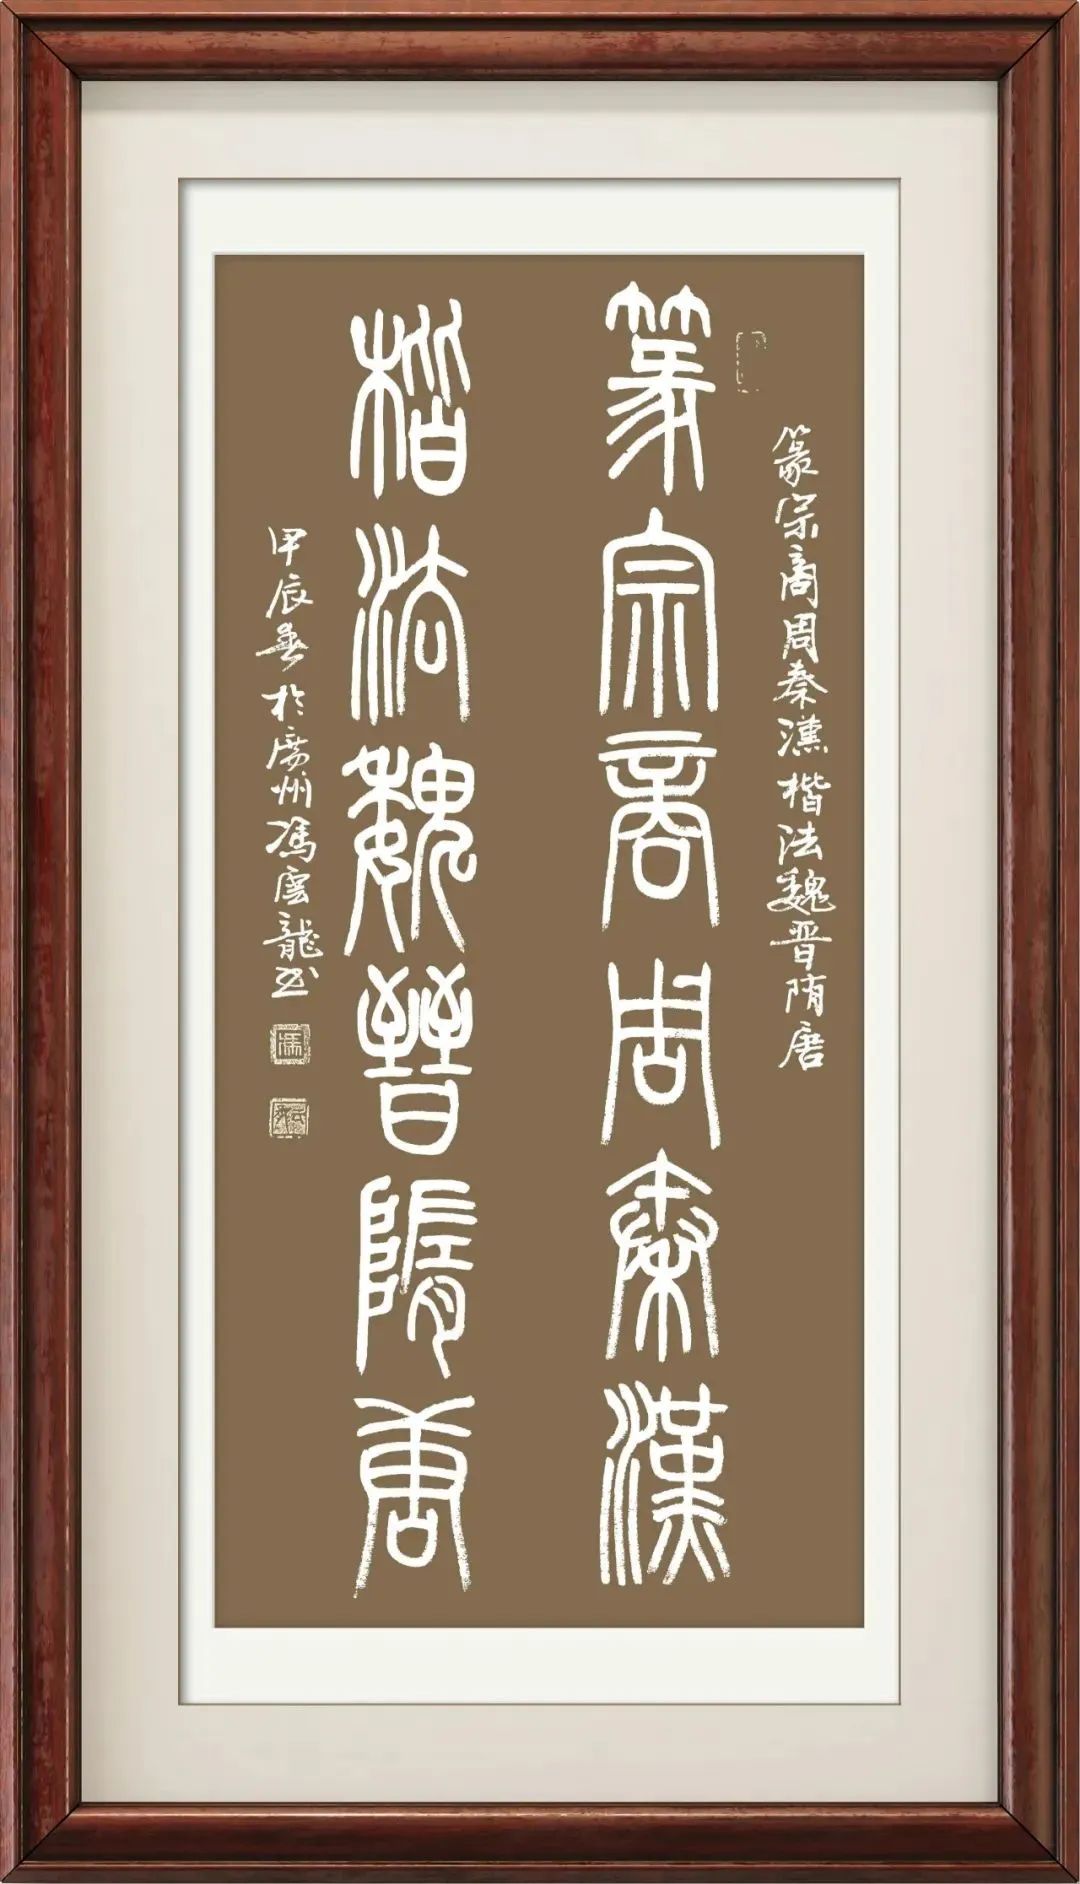 篆宗商周秦漢楷法魏晋隋唐
篆宗商周秦漢
楷法魏晉隋唐
甲辰春於廣州馮雲龍书
馮